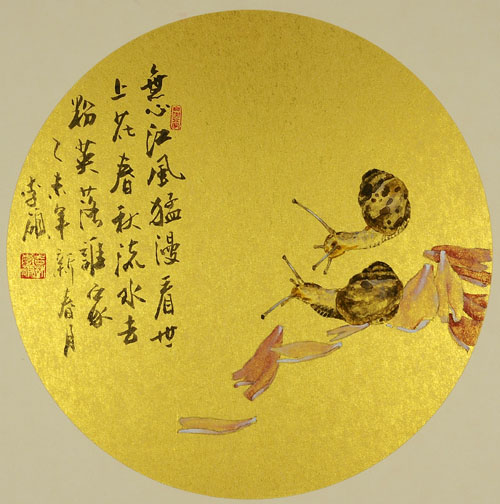 無心江風猛漫看世
上花春秋流水去
粉英落誰家
乙未年新春月
李